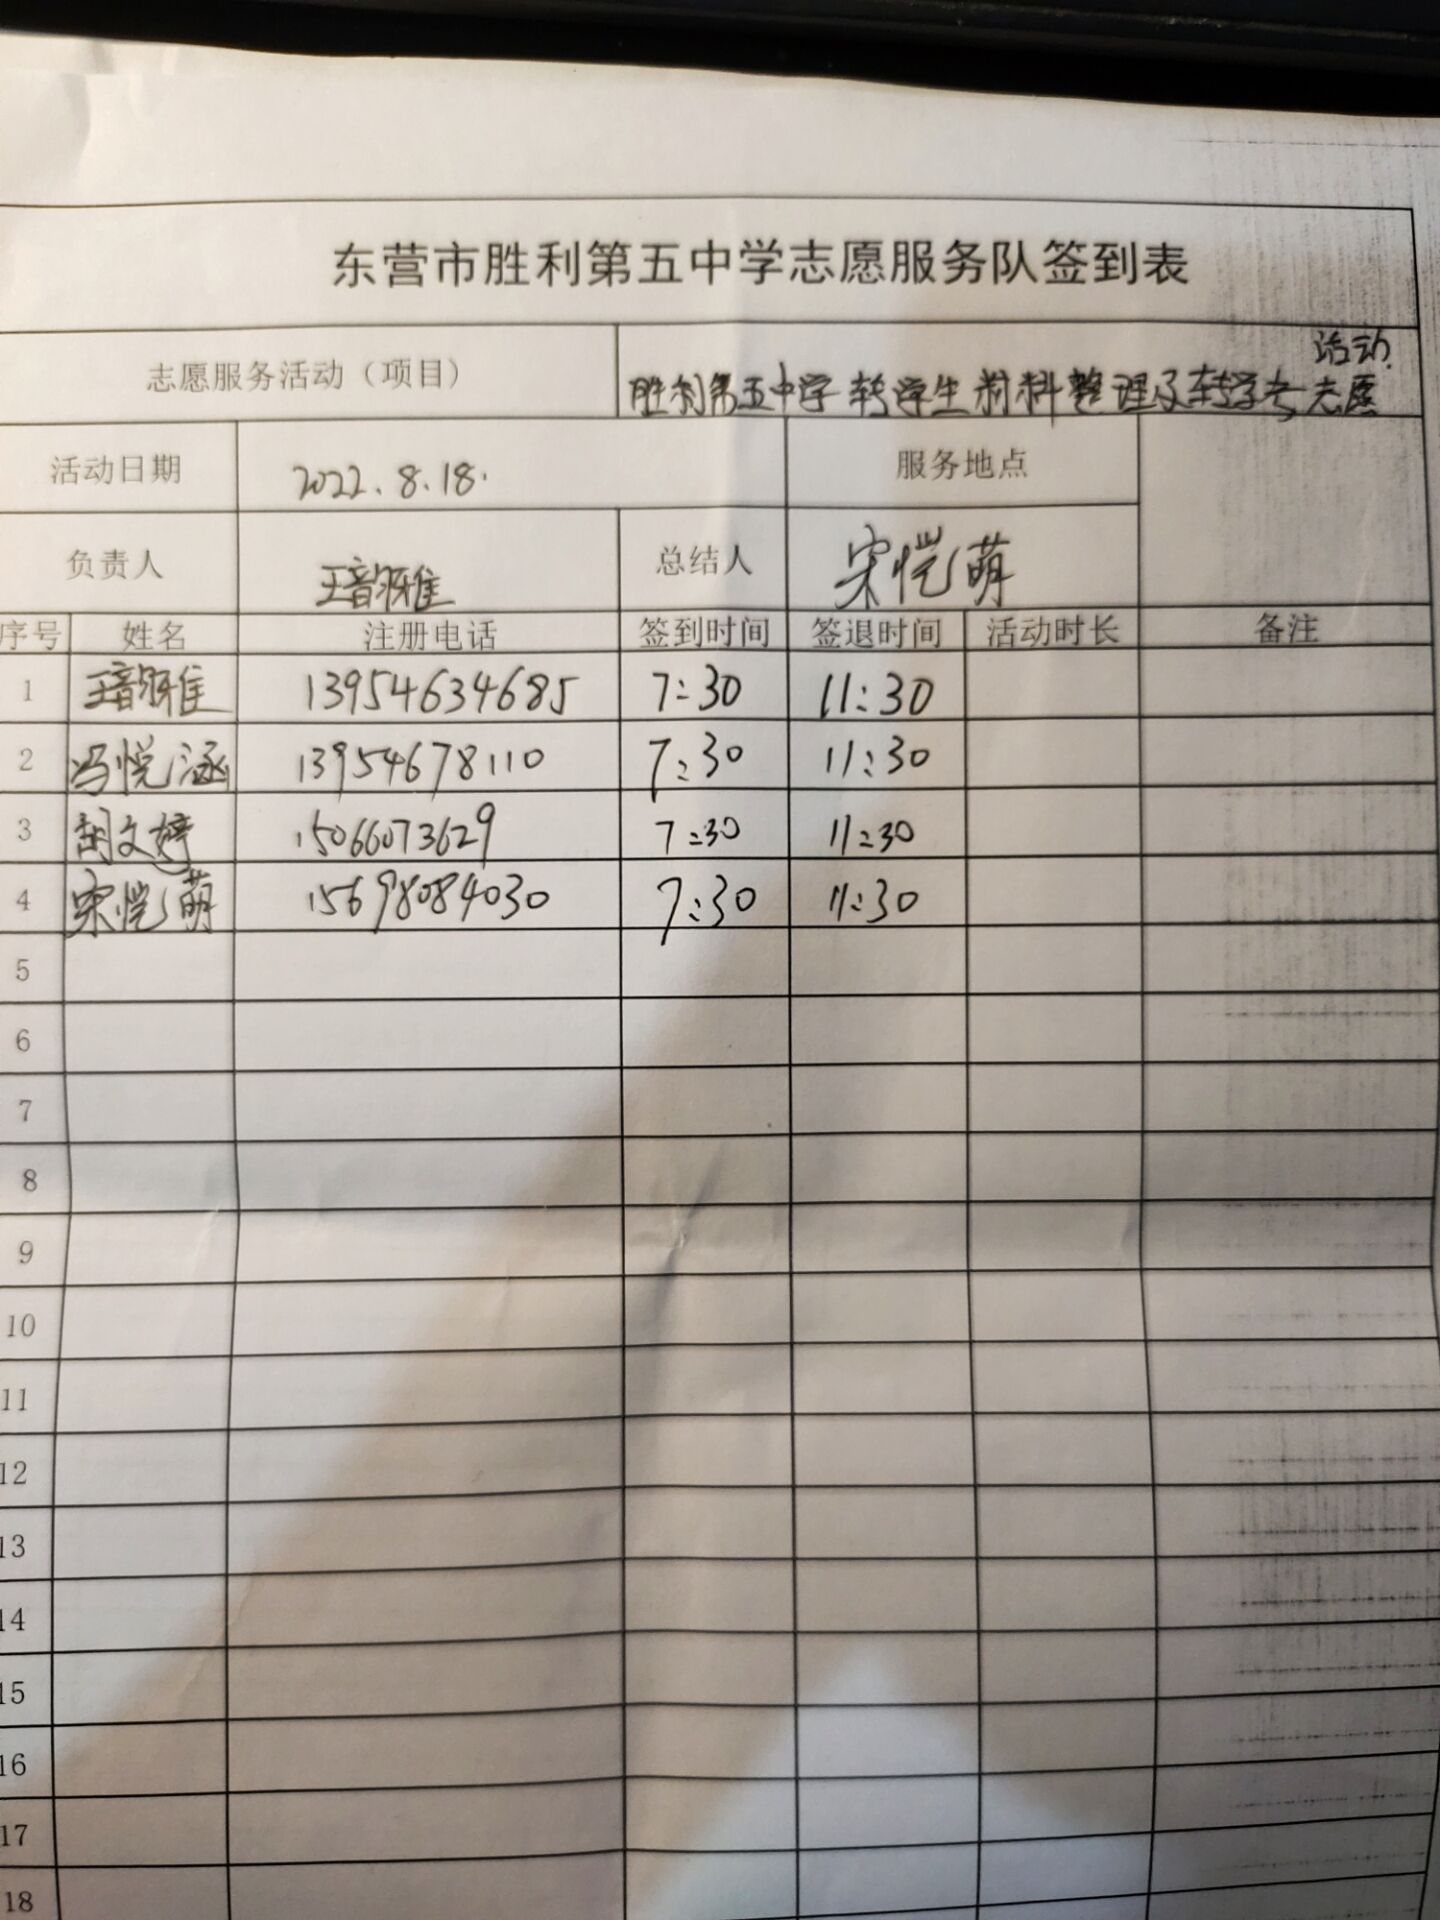 东营市胜利第五中学志愿服务队签到表
志愿服务活动（项目） 胜利第五中学转学生材料整理及转学考志愿活动.
活动日期 2022.8.18. 服务地点
负责人 王韵雅 总结人 宋恺萌
序号 姓名 注册电话 签到时间 签退时间 活动时长 备注
1 王韵雅 13954634685 7:30 11:30
2 冯悦涵 13954678110 7:30 11:30
3 胡文婷 15066073629 7:30 11:30
4 宋恺萌 15698084030 7:30 11:30
5
6
7
8
9
10
11
12
13
14
15
16
17
18